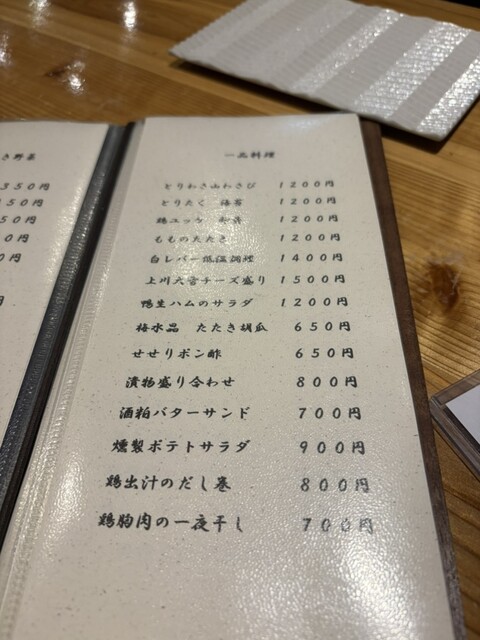 き野菜
350円
150円
50円
0円
0円
円
一品料理
とりわさ山わさび 1200円
とりたく 海苔 1200円
鶏ユッケ 卵黄 1200円
もものたたき 1200円
白レバー低温調理 1400円
上川大雪チーズ盛り 1500円
鴨生ハムのサラダ 1200円
梅水晶 たたき胡瓜 650円
せせりポン酢 650円
漬物盛り合わせ 800円
酒粕バターサンド 700円
燻製ポテトサラダ 900円
鶏出汁のだし巻 800円
鶏胸肉の一夜干し 700円